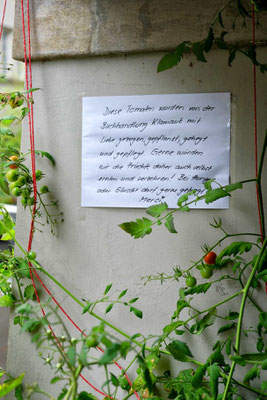 Diese Tomaten wurden von der
Buchhandlung Klamauk mit
Liebe gezogen, gepflanzt, gehegt
und gepflegt. Gerne würden
wir die Früchte daher auch selber
ernten und verzehren! Bei
oder Glücks darf gerne ge
Merci